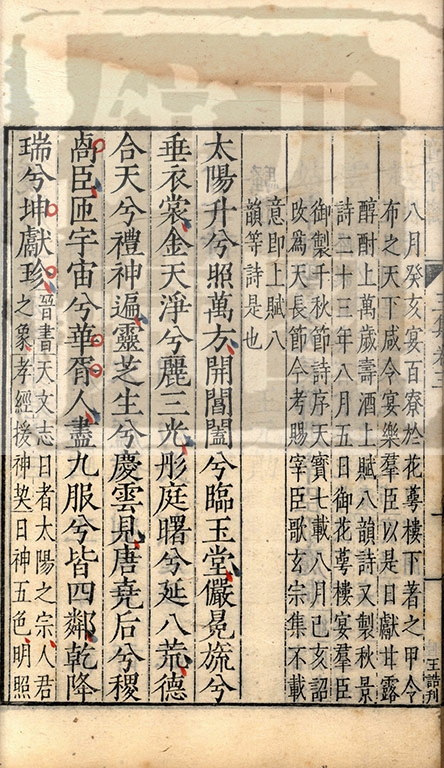 八月癸亥宴百寮於花萼樓下著之甲令
布之天下咸令宴樂羣臣以是日獻甘露
醇酎上萬歲壽酒上賦八韻詩又製秋景
詩二十三年八月五日御花萼樓宴羣臣
御製千秋節詩序天寶七載八月己亥詔
改爲天長節今考賜宰臣歌玄宗集不載
意即上賦八
韻等詩是也
太陽升兮照萬方開閶闔兮臨玉堂儼冕旒兮
垂衣裳金天淨兮麗三光彤庭曙兮延八荒德
合天兮禮神遍靈芝生兮慶雲見唐堯后兮稷
卨臣匝宇宙兮華胥人盡九服兮皆四鄰乾降
瑞兮坤獻珍晉書天文志日者太陽之宗人君
之象孝經援神契日神五色明照
王誥刊